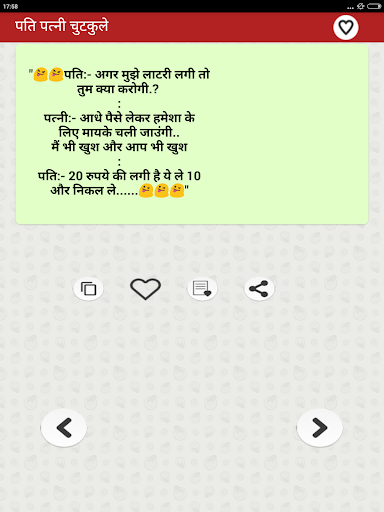 17:58
पति पत्नी चुटकुले
"😝😝पति:- अगर मुझे लाटरी लगी तो
तुम क्या करोगी.?
:
पत्नी:- आधे पैसे लेकर हमेशा के
लिए मायके चली जाउंगी..
मैं भी खुश और आप भी खुश
:
पति:- 20 रुपये की लगी है ये ले 10
और निकल ले......😝😝😝"